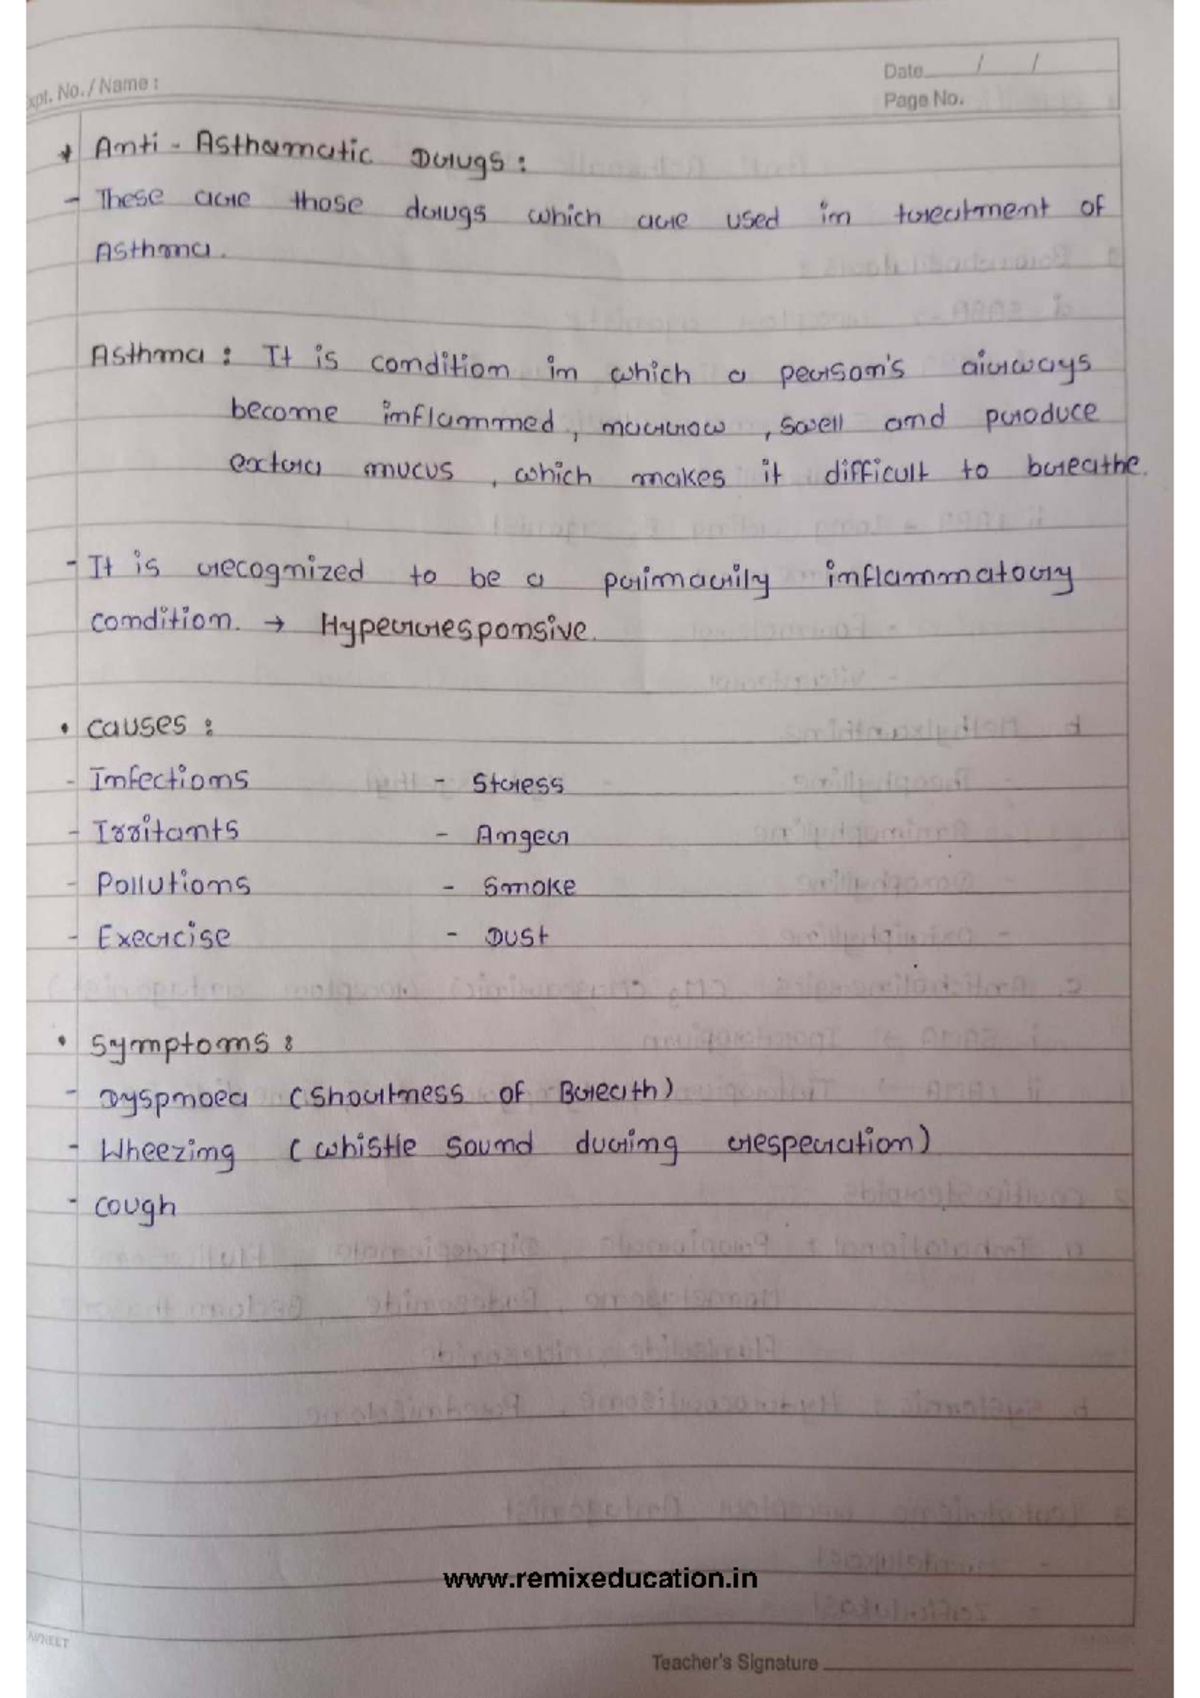 xpt. No./ Name :
Date / /
Page No.
Anti - Asthamatic Drugs :
- These are those drugs which are used in treatment of
Asthma.
Asthma : It is condition in which a person's airways
become inflammed, narrow, swell and produce
extra mucus, which makes it difficult to breathe.
- It is recognized to be a primarily inflammatory
condition. → Hyperresponsive.
• Causes :
- Infections - Stress
- Irritants - Anger
- Pollutions - Smoke
- Exercise - Dust
• Symptoms :
- Dyspnoea (Shortness of Breath)
- Wheezing (whistle sound during resperation)
- Cough
www.remixeducation.in
AVNEET
Teacher's Signature